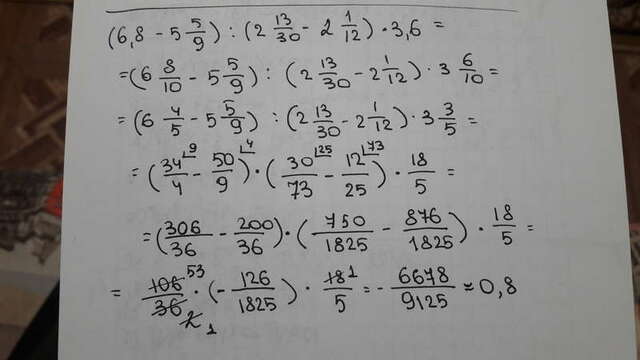 (6,8 - 5 5/9) : (2 13/30 - 2 1/12) · 3,6 =
= (6 8/10 - 5 5/9) : (2 13/30 - 2 1/12) · 3 6/10 =
= (6 4/5 - 5 5/9) : (2 13/30 - 2 1/12) · 3 3/5 =
= (34/4 ⌊9 - 50/9 ⌊4) · (30/73 ⌊25 - 12/25 ⌊73) · 18/5 =
= (306/36 - 200/36) · (750/1825 - 876/1825) · 18/5 =
= 106 53/36 2 1 · (- 126/1825) · 18 1/5 = - 6678/9125 ≈ 0,8